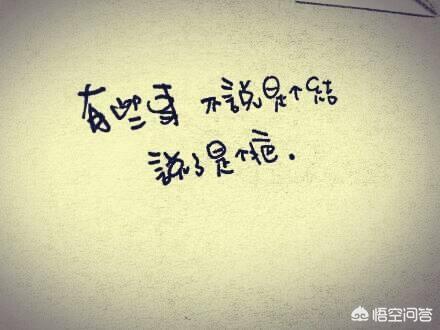 有些事 不說是个结
說了是个疤.
悟空问答